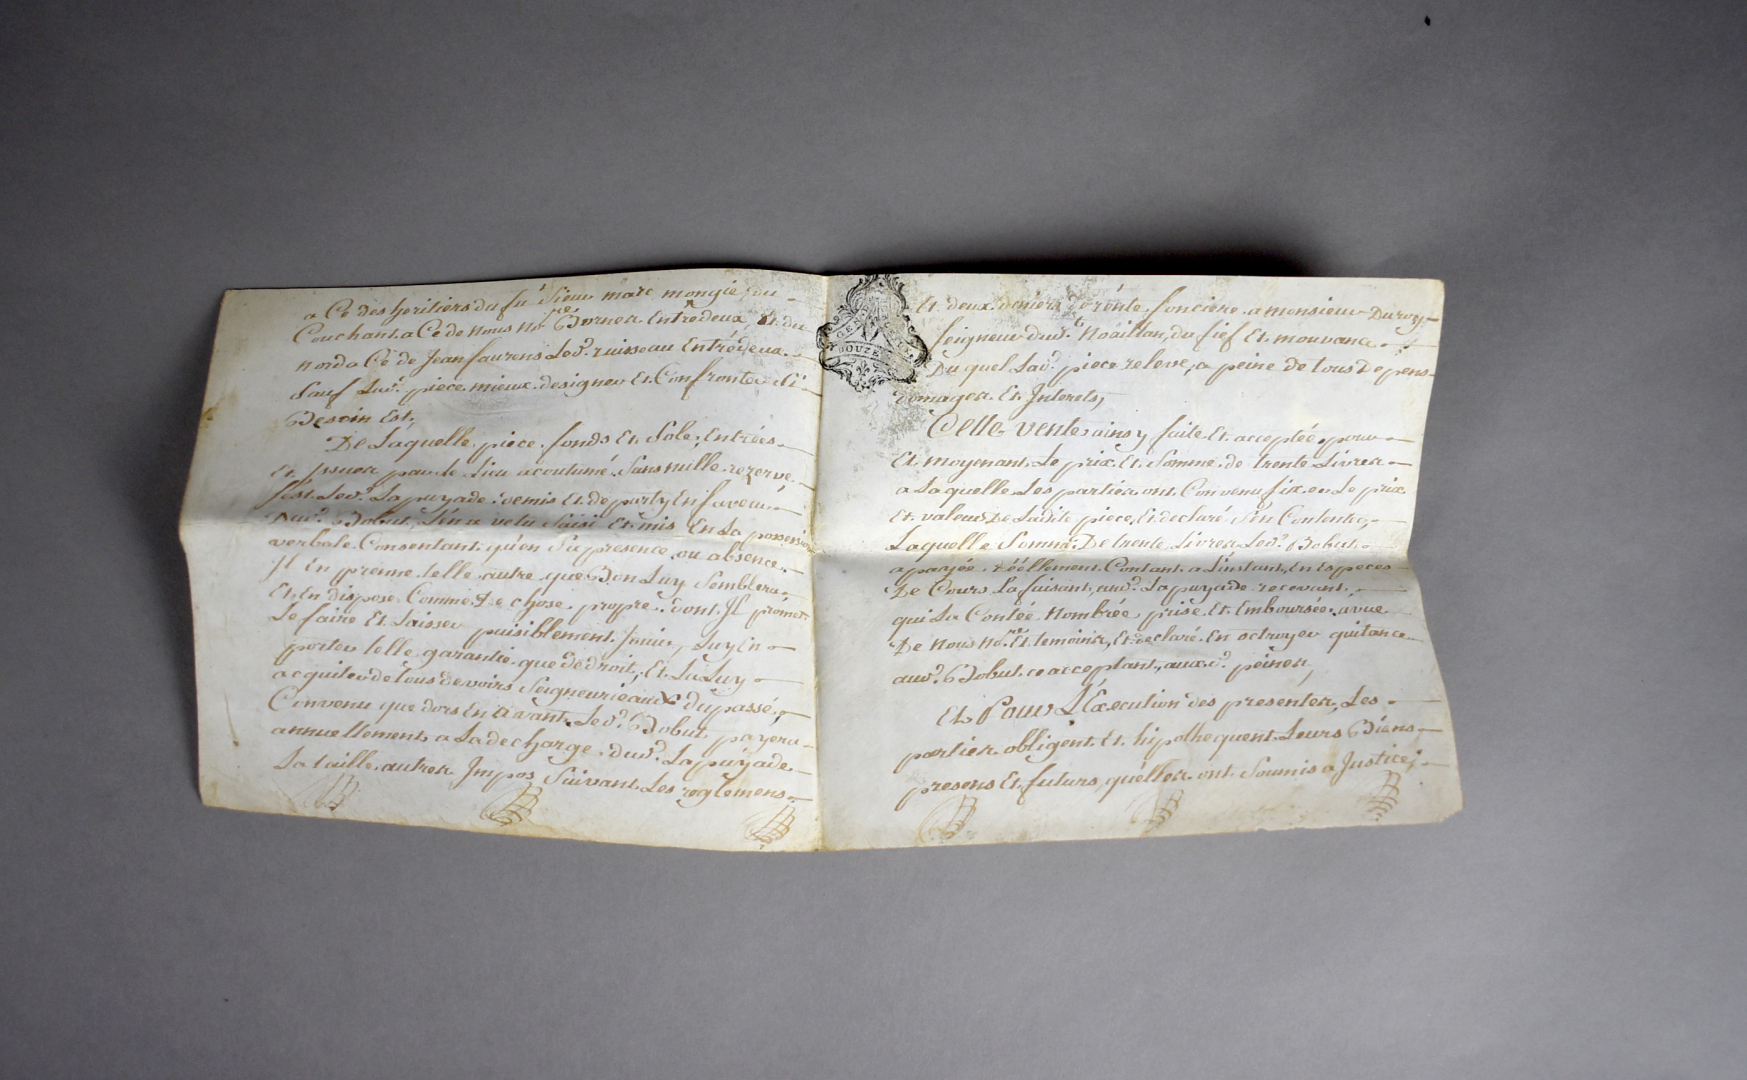 a Cé des heritiers du fú Sieur marc mongie, du
Couchant a Cé de nous no.re Bornea Entredeux, Et du
nord a Cé de Jean faurens Led.t ruisseau Entredeux
Sauf Lad.e piece mieux designer Et Confronter Si
Besoin Est,
De Laquelle piece, fonds Et Sole, Entrées
Et Issuea par le Lieu acoutumé Sans nulle rezerve,
S'est Led.t Lapuyade demis Et de party En faveur
Dud.t Bobut, L'en a vetu Saisi Et mis En La possession
verbale Consentant qu'en Sa presence ou absence
Il En prenne telle autre que Bon Luy Semblera
Et En dispose Comme De chose propre dont Il promet
Le faire Et Laisser paisiblement Jouir, Luy En
porter telle garantie que de droit, Et La Luy
acquiter de tous devoirs Seigneurieaux du passé,
Convenu que dors En avant Led.t Bobut payera
annuellement a La decharge dud.t Lapuyade
La taille autrea Impos Suivant Les reglemens
GENE
DOUZE
Et deux deniers de rente fonciere a monsieur Duroy
Seigneur dud.t Noaillan, du fief Et mouvance
Du quel Lad.e piece releve, a peine de tous Depens
domagea Et Interets,
Cette vente ainsy faite Et acceptée pour
Et moyenant Le prix Et Somme de trente Livrea
a Laquelle Les partiea ont Convenu fixer Le prix
Et valeur De Ladite piece, Et declaré S'en Contenter,
Laquelle Somme De trente Livrea Led.t Bobut
a payée réellement Contant a L'instant, En Especes
De Cours La faisant, aud.t Lapuyade recevant,
qui La Contée Nombrée prise Et Emboursée a vue
De nous no.re Et temoina, Et declaré En octroyer quitance
aud.t Bobut ce acceptant, aux d.t peinea,
Et Pour L'Execution des presentea, Les
partiea obligent Et hipothequent Leurs Biens
presens Et futurs, qu'ellea ont Soumis a Justice,